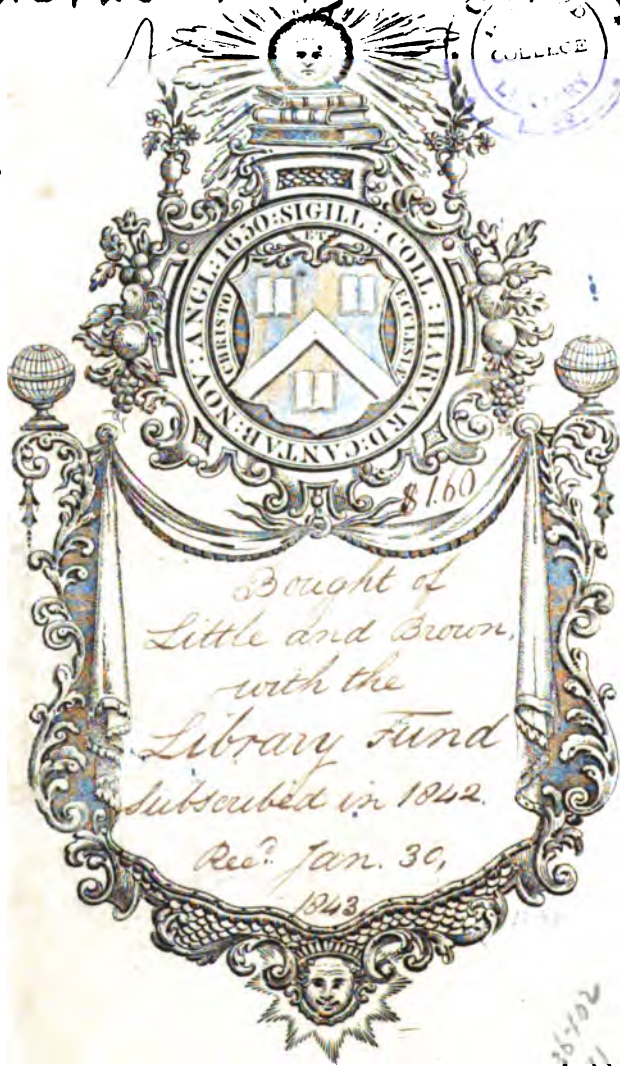 COLLEGE
SIGILL : COLL : HARVARD : CANTAB : NOV : ANGL : 1650 :
ET
CHRISTO
ECCLESIÆ
$1.60
Bought of
Little and Brown,
with the
Library Fund
subscribed in 1842.
Rec.d Jan. 30,
1843